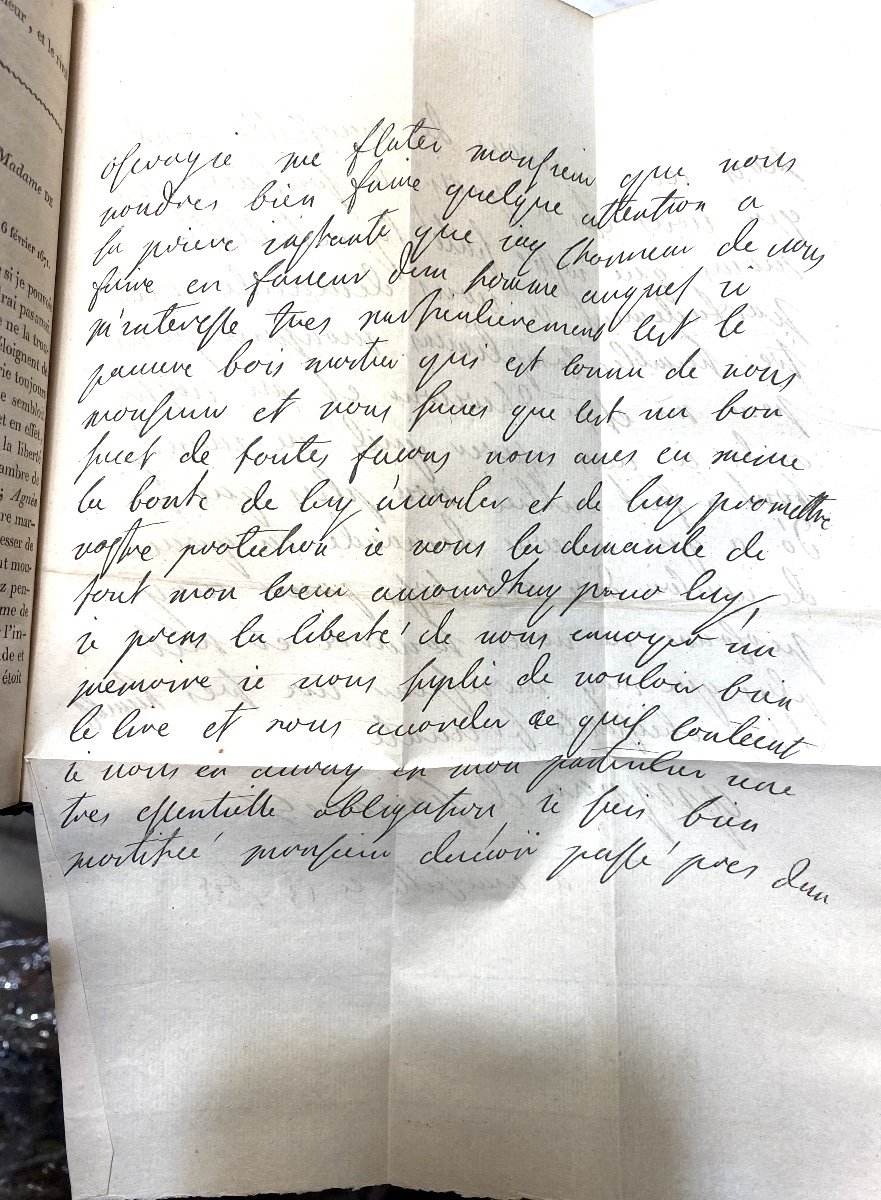 ieur, et le rival
Madame DE
6 février 1671.
si je pouvois
rai pas
ne la trou-
éloignent de
rie toujours
e sembloit
et en effet,
la liberté
ambre de
Agnès
re mar-
esser de
nt mon-
z pen-
me de
l'in-
de et
étoit
oseroyie me flater monsieur que vous
voudres bien faire quelque attention a
la priere instante que iay lhonneur de vous
faire en faueur dun homme auquel ie
m'interesse tres particulierement cest le
pauure bois mortier qui est connu de vous
monsieur et vous saues que cest un bon
suiet de toutes facons vous aues eu meme
la bonte de luy acorder et de luy promettre
vostre protection ie vous la demande de
tout mon coeur auiourdhuy pour luy,
ie prens la liberté de vous enuoyer un
memoire ie vous suplie de vouloir bien
le lire et vous acorder ce quil contient
ie vous en auray en mon particulier une
tres essentielle obligation, ie suis bien
mortifiée monsieur dauoir passé pres dun